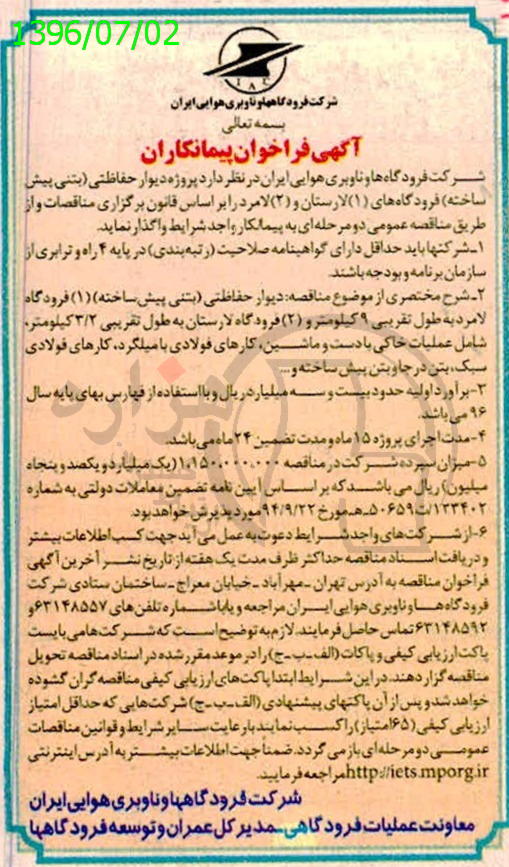 1396/07/02
IAC
شرکت فرودگاهها و ناوبری هوایی ایران
بسمه تعالی
آگهی فراخوان پیمانکاران
شرکت فرودگاه‌ها و ناوبری هوایی ایران در نظر دارد پروژه دیوار حفاظتی (بتنی پیش
ساخته) فرودگاه‌های (۱) لارستان و (۲) لامرد را بر اساس قانون برگزاری مناقصات و از
طریق مناقصه عمومی دو مرحله‌ای به پیمانکار واجد شرایط واگذار نماید.
۱ـ شرکتها باید حداقل دارای گواهینامه صلاحیت (رتبه‌بندی) در پایه ۴ راه و ترابری از
سازمان برنامه و بودجه باشند.
۲ـ شرح مختصری از موضوع مناقصه: دیوار حفاظتی (بتنی پیش‌ساخته) (۱) فرودگاه
لامرد به طول تقریبی ۹ کیلومتر و (۲) فرودگاه لارستان به طول تقریبی ۳/۲ کیلومتر،
شامل عملیات خاکی با دست و ماشین، کارهای فولادی با میلگرد، کارهای فولادی
سبک، بتن درجا و بتن پیش ساخته و...
۳- برآورد اولیه حدود بیست و سه میلیارد ریال و با استفاده از فهارس بهای پایه سال
۹۶ می باشد.
۴- مدت اجرای پروژه ۱۵ ماه و مدت تضمین ۲۴ ماه می‌باشد.
۵- میزان سپرده شرکت در مناقصه ۱،۱۵۰،۰۰۰،۰۰۰ (یک میلیارد و یکصد و پنجاه
میلیون) ریال می باشد که بر اساس آیین نامه تضمین معاملات دولتی به شماره
۱۲۳۴۰۲/ت۵۰۶۵۹ـ هـ مورخ ۹۴/۹/۲۲ مورد پذیرش خواهد بود.
۶- از شرکت‌های واجد شرایط دعوت به عمل می آید جهت کسب اطلاعات بیشتر
و دریافت اسناد مناقصه حداکثر ظرف مدت یک هفته از تاریخ نشر آخرین آگهی
فراخوان مناقصه به آدرس تهران ـ مهرآباد ـ خیابان معراج ـ ساختمان ستادی شرکت
فرودگاه‌ها و ناوبری هوایی ایران مراجعه و یا با شماره تلفن های ۶۳۱۴۸۵۵۷ و
۶۳۱۴۸۵۹۲ تماس حاصل فرمایند. لازم به توضیح است که شرکت ها می بایست
پاکت ارزیابی کیفی و پاکات (الف-ب-ج) را در موعد مقرر شده در اسناد مناقصه تحویل
مناقصه گزار دهند. در این شرایط ابتدا پاکت‌های ارزیابی کیفی مناقصه گران گشوده
خواهد شد و پس از آن پاکتهای پیشنهادی (الف-ب-ج) شرکت‌هایی که حداقل امتیاز
ارزیابی کیفی (۶۵ امتیاز) را کسب نمایند با رعایت سایر شرایط و قوانین مناقصات
عمومی دو مرحله‌ای باز می گردد. ضمناً جهت اطلاعات بیشتر به آدرس اینترنتی
http://iets.mporg.ir مراجعه فرمایید.
شرکت فرودگاهها و ناوبری هوایی ایران
معاونت عملیات فرودگاهی - مدیر کل عمران و توسعه فرودگاهها